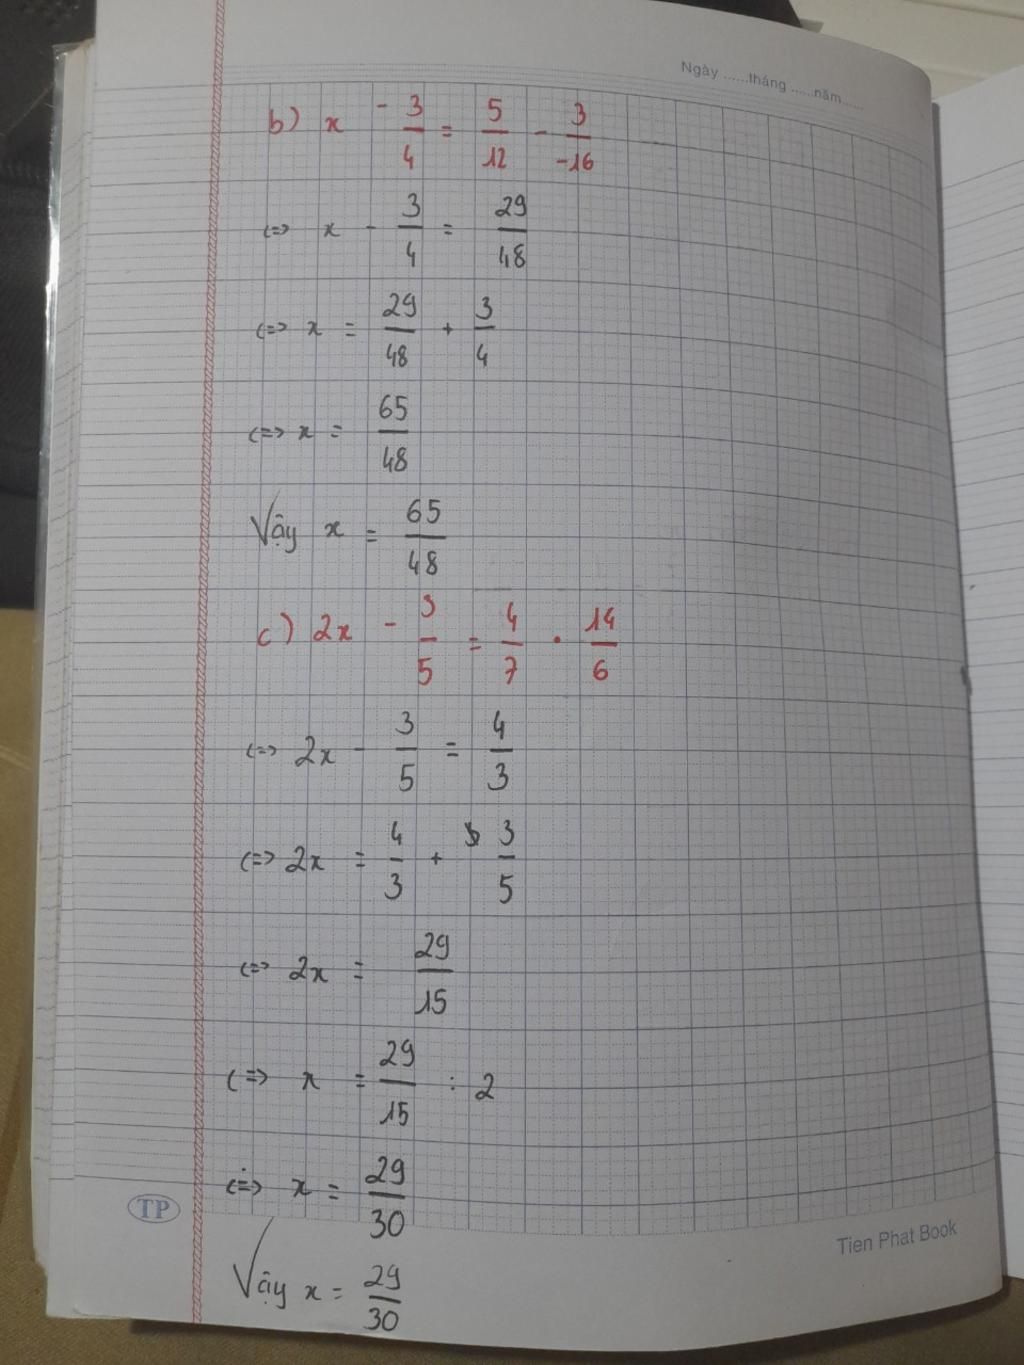 Ngày ......tháng ......năm......
b) x - 3/4 = 5/12 - 3/-16
<=> x - 3/4 = 29/48
<=> x = 29/48 + 3/4
<=> x = 65/48
Vậy x = 65/48
c) 2x - 3/5 = 4/7 . 14/6
<=> 2x - 3/5 = 4/3
<=> 2x = 4/3 + 3/5
<=> 2x = 29/15
<=> x = 29/15 : 2
<=> x = 29/30
Vậy x = 29/30
TP
Tien Phat Book